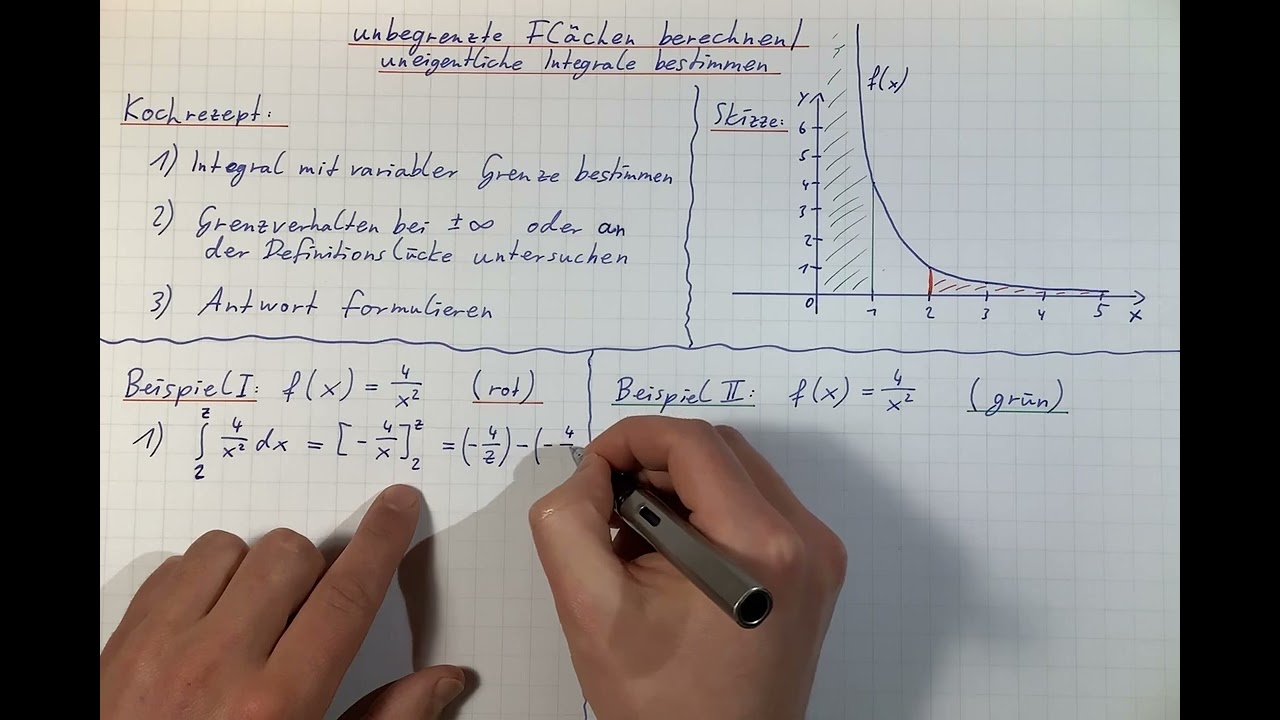 unbegrenzte Flächen berechnen/
uneigentliche Integrale bestimmen
Kochrezept:
1) Integral mit variabler Grenze bestimmen
2) Grenzverhalten bei ±∞ oder an
der Definitionslücke untersuchen
3) Antwort formulieren
Skizze:
y
f(x)
6
5
4
3
2
1
0 1 2 3 4 5 x
Beispiel I: f(x) = 4/x² (rot)
1) ∫₂ᶻ 4/x² dx = [-4/x]₂ᶻ = (-4/z) - (-4
Beispiel II: f(x) = 4/x² (grün)